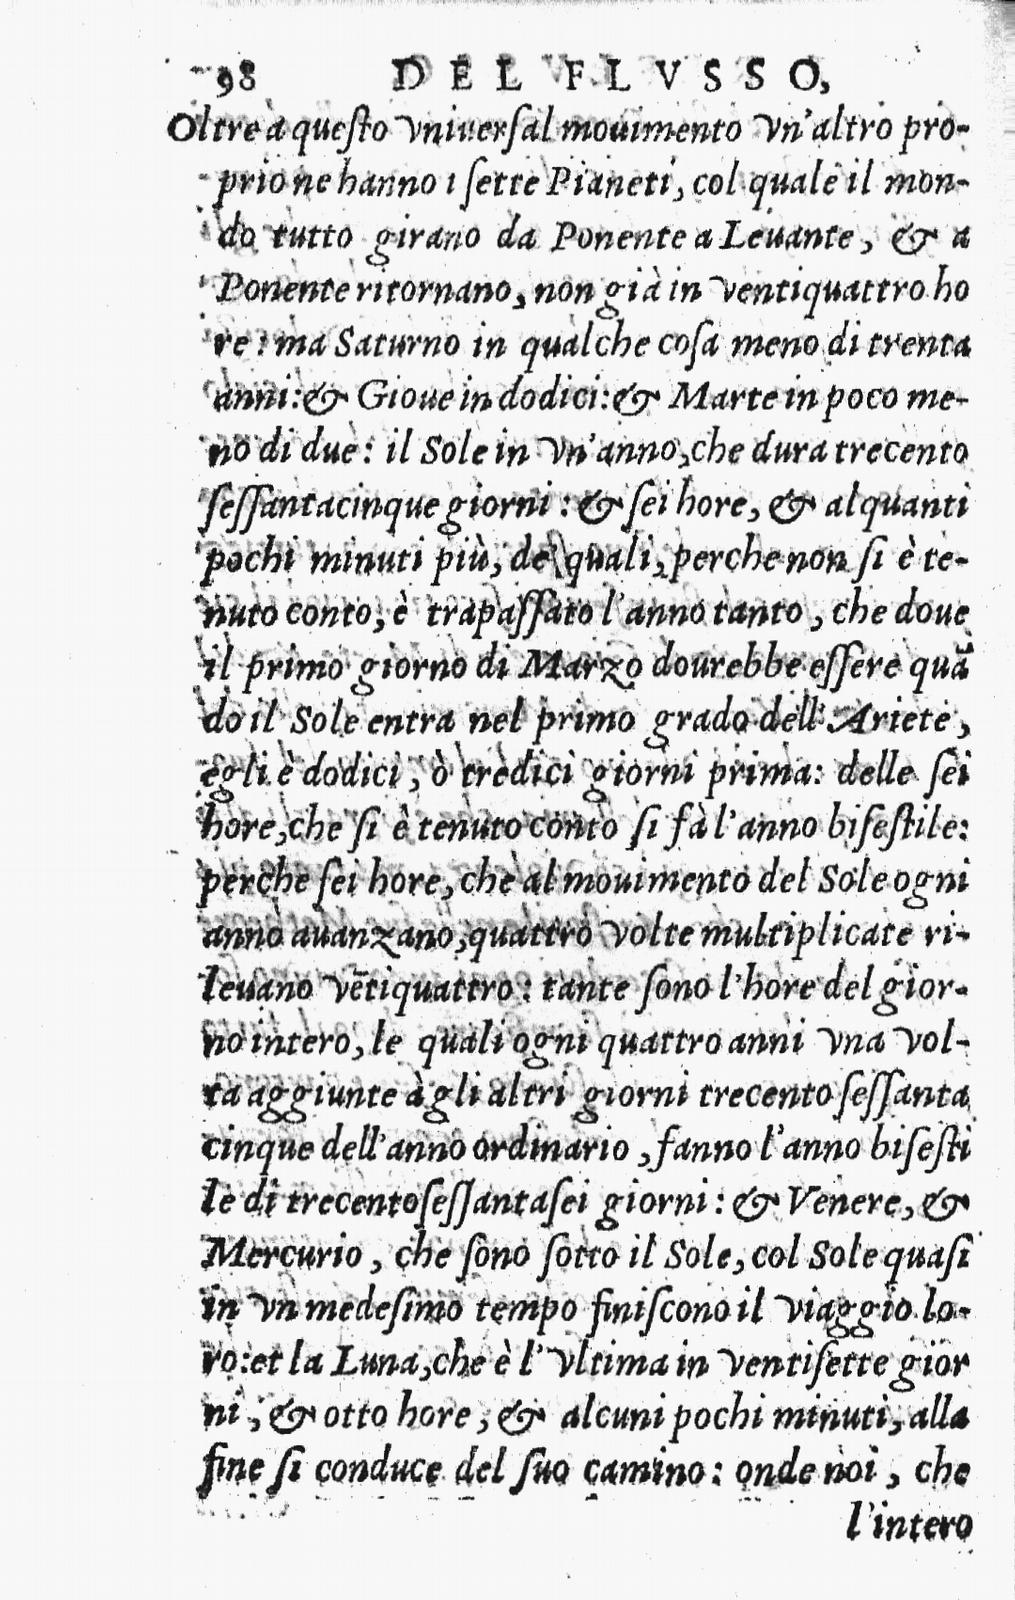 98 DEL FLVSSO,
Oltre a questo vniuersal mouimento vn'altro pro-
prio ne hanno i sette Pianeti, col quale il mon-
do tutto girano da Ponente a Leuante, & a
Ponente ritornano, non già in ventiquattro ho
re: ma Saturno in qualche cosa meno di trenta
anni: & Gioue in dodici: & Marte in poco me-
no di due: il Sole in vn'anno, che dura trecento
sessantacinque giorni: & sei hore, & alquanti
pochi minuti più, de' quali, perche non si è te-
nuto conto, è trapassato l'anno tanto, che doue
il primo giorno di Marzo dourebbe essere quã
do il Sole entra nel primo grado dell'Ariete,
egli è dodici, ò tredici giorni prima: delle sei
hore, che si è tenuto conto si fà l'anno bisestile:
perche sei hore, che al mouimento del Sole ogni
anno auanzano, quattro volte multiplicate ri-
leuano vẽtiquattro: tante sono l'hore del gior-
no intero, le quali ogni quattro anni vna vol-
ta aggiunte à gli altri giorni trecento sessanta
cinque dell'anno ordinario, fanno l'anno bisesti
le di trecentosessantasei giorni: & Venere, &
Mercurio, che sono sotto il Sole, col Sole quasi
in vn medesimo tempo finiscono il viaggio lo-
ro: et la Luna, che è l'vltima in ventisette gior
ni, & otto hore, & alcuni pochi minuti, alla
fine si conduce del suo camino: onde noi, che
l'intero